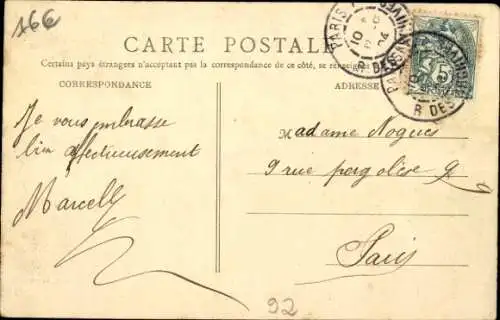 166
CARTE POSTALE
Certains pays étrangers n'acceptant pas la correspondance de ce côté, se renseigner
CORRESPONDANCE
ADRESSE
Je vous embrasse
bien affectueusement
Marcelle
Madame Nogues
9 rue pergolèse 9
Paris
92
PARIS
10
04
R DES
PARIS
R DES
5